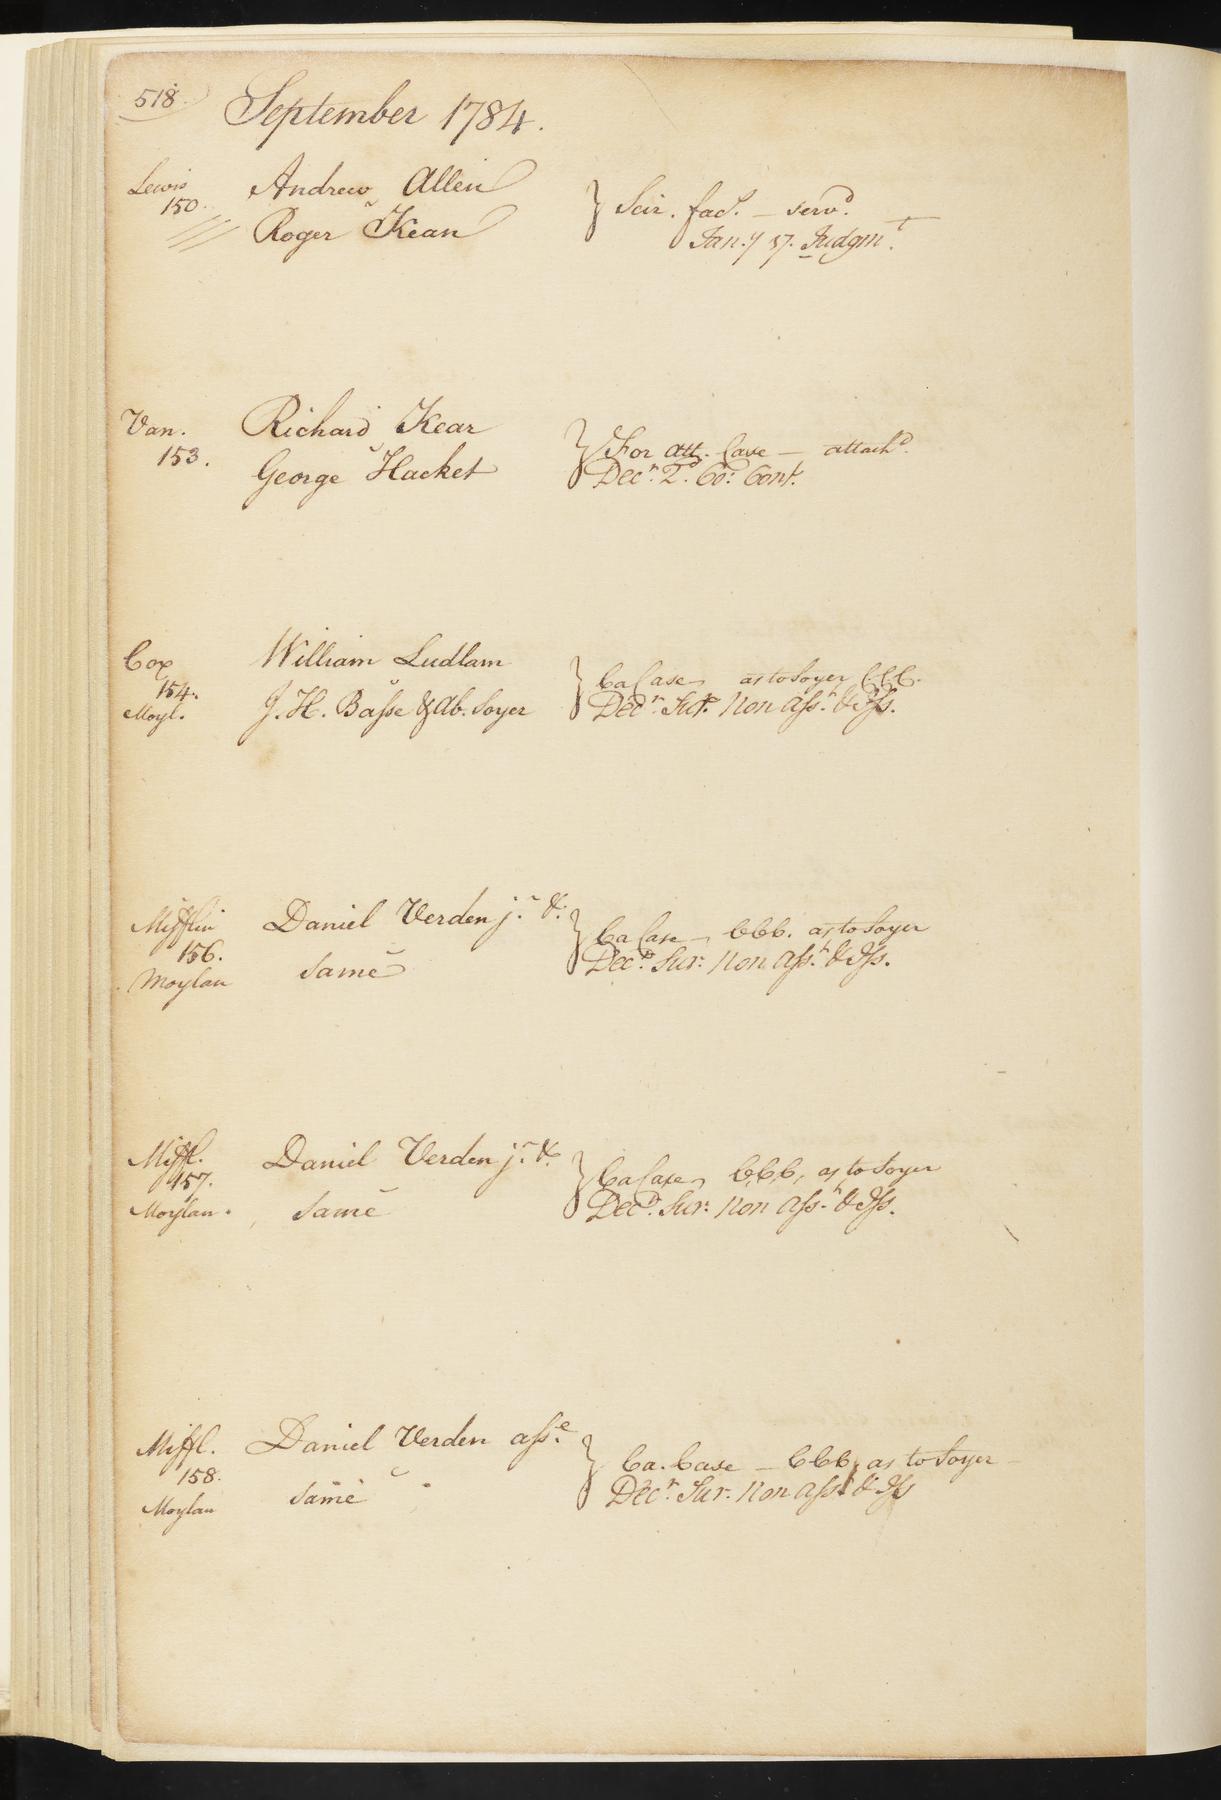 518. September 1784.
Lewis Andrew Allen } Scir. fac.s — serv.d
150. v
Roger Kean Jan.y 17. Judgm.t
Van. Richard Kear } For att. Case — attach.d
153. v
George Hacket Dec.r 2.d Co: Cont.
Cox William Ludlam } Ca Case as to Soyer CCC.
154. v
Moyl. J. H. Basse & Ab. Soyer Dec.r Sur. Non Ass.t & Iss.
Mifflin Daniel Verden j.r &. } Ca Case — CCC. as to Soyer
156. v
Moylan Same Dec.r Sur. Non Ass.t & Iss.
Miffl. Daniel Verden j.r &. } Ca Case CCC, as to Soyer
157. v
Moylan. Same Dec.r Sur. Non Ass.t & Iss.
Miffl. Daniel Verden ass.e } Ca. Case — CCC, as to Soyer —
158. v
Moylan Same Dec.r Sur. Non Ass.t & Iss